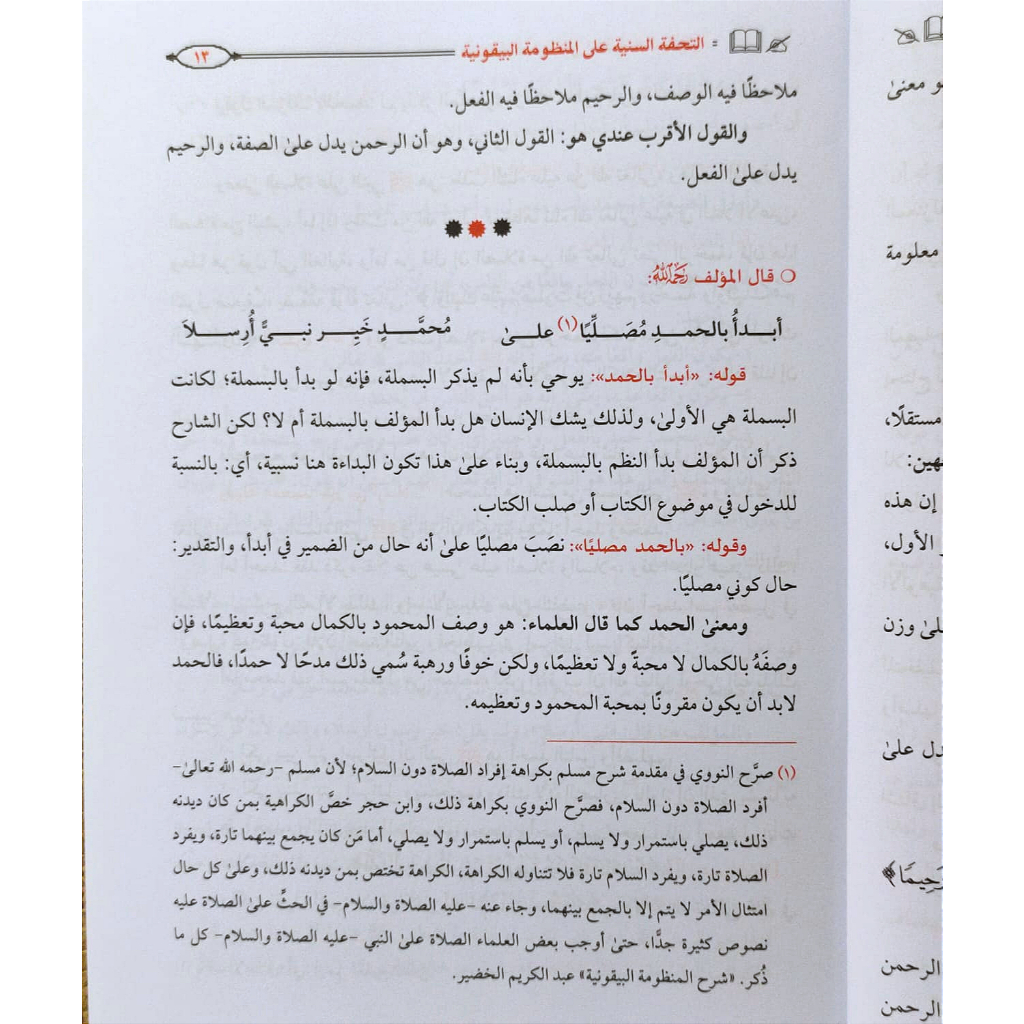 التحفة السنية على المنظومة البيقونية =
١٣
ملاحظًا فيه الوصف، والرحيم ملاحظًا فيه الفعل.
والقول الأقرب عندي هو: القول الثاني، وهو أن الرحمن يدل علىٰ الصفة، والرحيم
يدل علىٰ الفعل.
○ قال المؤلف رَحِمَهُ اللَّهُ:
أبـدأُ بالحمـدِ مُصَلِّيًا(١) علـىٰ مُحمَّـدٍ خَيِـر نبـيٍّ أُرسِـلاَ
قوله: «أبدأ بالحمد»: يوحي بأنه لم يذكر البسملة، فإنه لو بدأ بالبسملة؛ لكانت
البسملة هي الأولىٰ، ولذلك يشك الإنسان هل بدأ المؤلف بالبسملة أم لا؟ لكن الشارح
ذكر أن المؤلف بدأ النظم بالبسملة، وبناء علىٰ هذا تكون البداءة هنا نسبية، أي: بالنسبة
للدخول في موضوع الكتاب أو صلب الكتاب.
وقوله: «بالحمد مصليًا»: نصَبَ مصليًا علىٰ أنه حال من الضمير في أبدأ، والتقدير:
حال كوني مصليًا.
ومعنىٰ الحمد كما قال العلماء: هو وصف المحمود بالكمال محبة وتعظيمًا، فإن
وصفَهُ بالكمال لا محبةً ولا تعظيمًا، ولكن خوفًا ورهبة سُمي ذلك مدحًا لا حمدًا، فالحمد
لابد أن يكون مقرونًا بمحبة المحمود وتعظيمه.
(١) صرَّح النووي في مقدمة شرح مسلم بكراهة إفراد الصلاة دون السلام؛ لأن مسلم –رحمه الله تعالىٰ–
أفرد الصلاة دون السلام، فصرَّح النووي بكراهة ذلك، وابن حجر خصَّ الكراهية بمن كان ديدنه
ذلك، يصلي باستمرار ولا يسلم، أو يسلم باستمرار ولا يصلي، أما مَن كان يجمع بينهما تارة، ويفرد
الصلاة تارة، ويفرد السلام تارة فلا تتناوله الكراهة، الكراهة تختص بمن ديدنه ذلك، وعلىٰ كل حال
امتثال الأمر لا يتم إلا بالجمع بينهما، وجاء عنه –عليه الصلاة والسلام– في الحثِّ علىٰ الصلاة عليه
نصوص كثيرة جدًّا، حتىٰ أوجب بعض العلماء الصلاة علىٰ النبي –عليه الصلاة والسلام– كل ما
ذُكر. «شرح المنظومة البيقونية» عبد الكريم الخضير.
معنىٰ
معلومة
مستقلًا،
إن هذه
الأول،
وزن
علىٰ
الرحمن
الرحمن